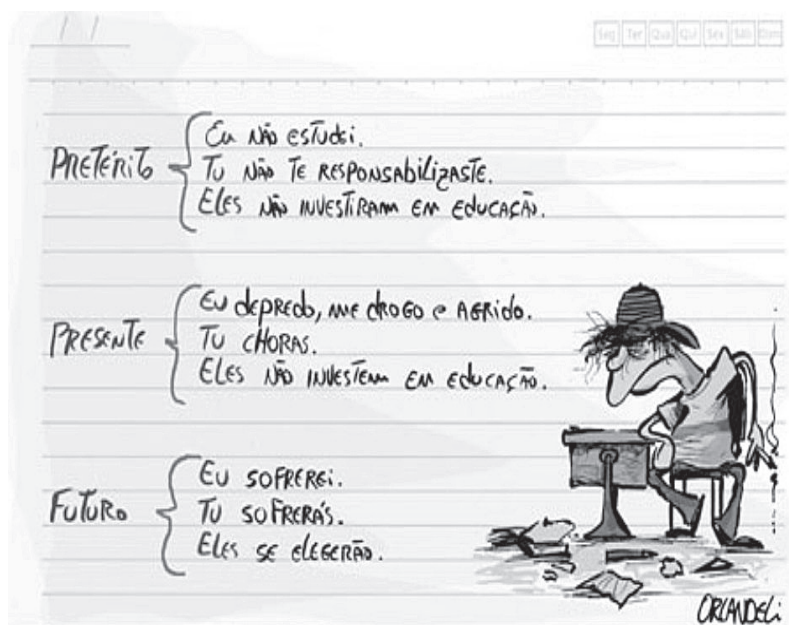 / /
Seg Ter Qua Qui Sex Sáb Dom
PRETÉRITO
EU NÃO ESTUDEI.
TU NÃO TE RESPONSABILIZASTE.
ELES NÃO INVESTIRAM EM EDUCAÇÃO.
PRESENTE
EU DEPREDO, ME DROGO E AGRIDO.
TU CHORAS.
ELES NÃO INVESTEM EM EDUCAÇÃO.
FUTURO
EU SOFREREI.
TU SOFRERÁS.
ELES SE ELEGERÃO.
ORLANDELI